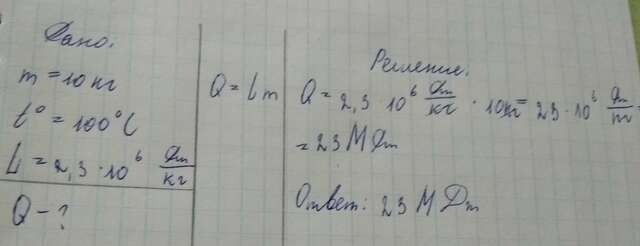 Дано:
m = 10 кг
t° = 100°C
L = 2,3 · 10⁶ Дж/кг
Q - ?
Q = Lm
Решение:
Q = 2,3 · 10⁶ Дж/кг · 10кг = 23 · 10⁶ Дж/m =
= 23 М Дж
Ответ: 23 М Дж